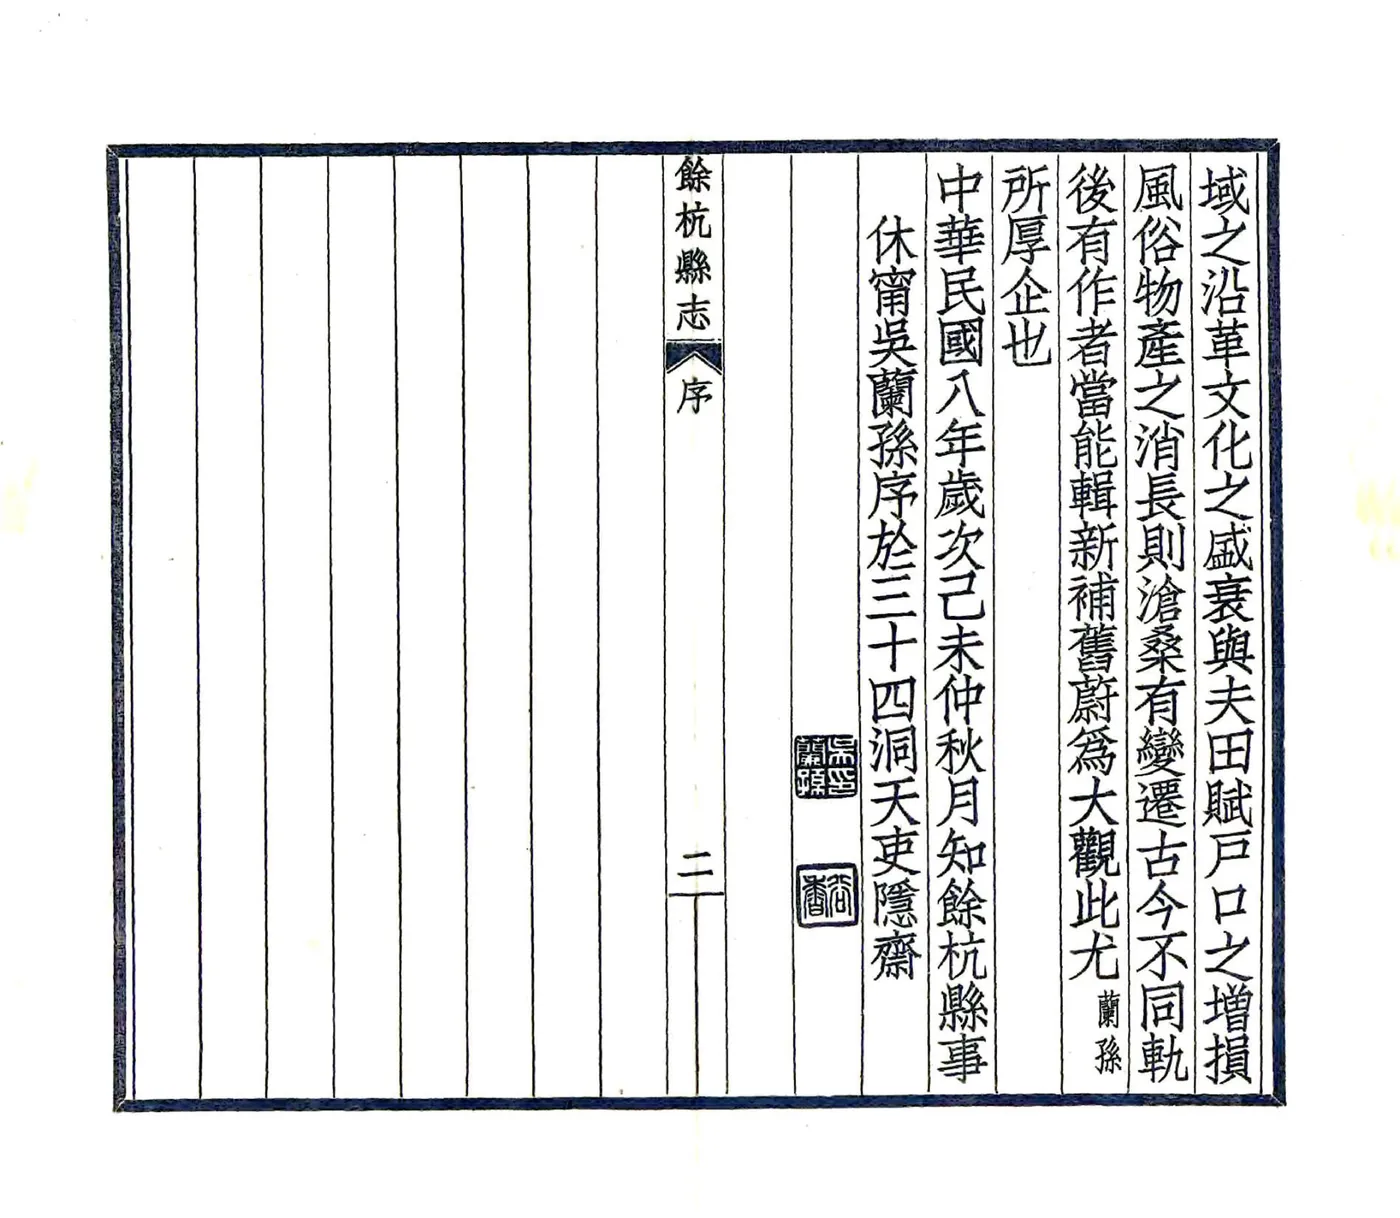 域之沿革文化之盛衰與夫田賦戸口之增損
風俗物產之消長則滄桑有變遷古今不同軌
後有作者當能輯新補舊蔚爲大觀此尤蘭孫
所厚企也
中華民國八年歲次己未仲秋月知餘杭縣事
休甯吳蘭孫序於三十四洞天吏隱齋
吳印蘭孫
谷香
餘杭縣志
序
二